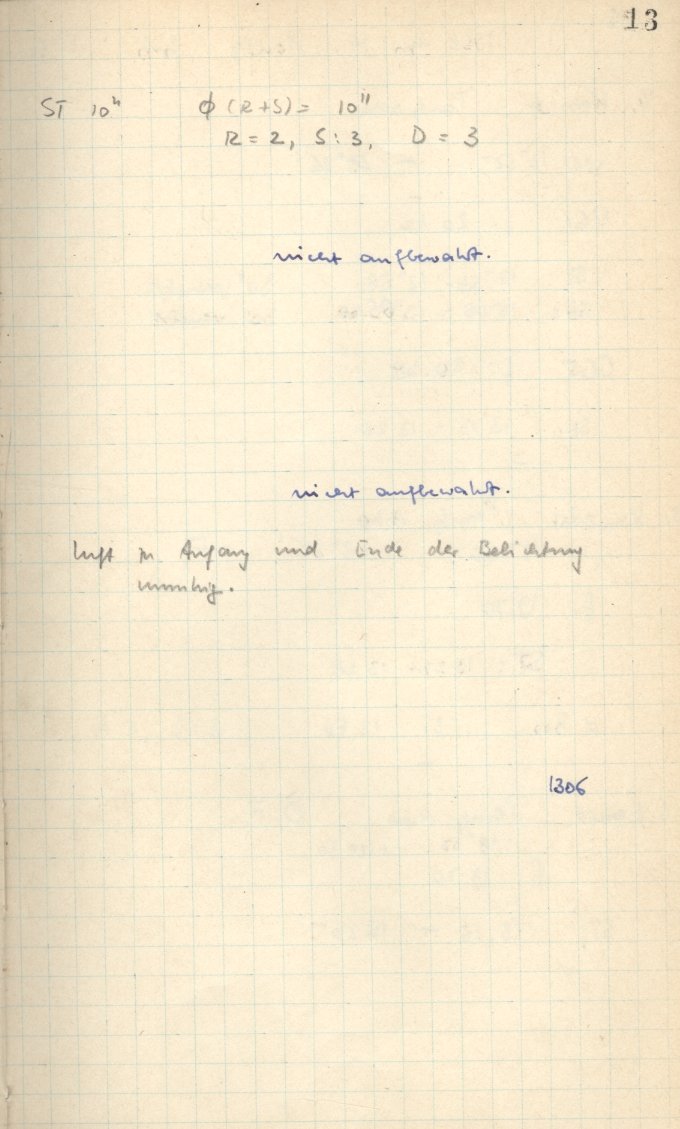 13
ST 10" ϕ (R+S) = 10"
R = 2, S : 3, D = 3
nicht aufbewahrt.
nicht aufbewahrt.
Luft zu Anfang und Ende der Belichtung
unruhig.
1306